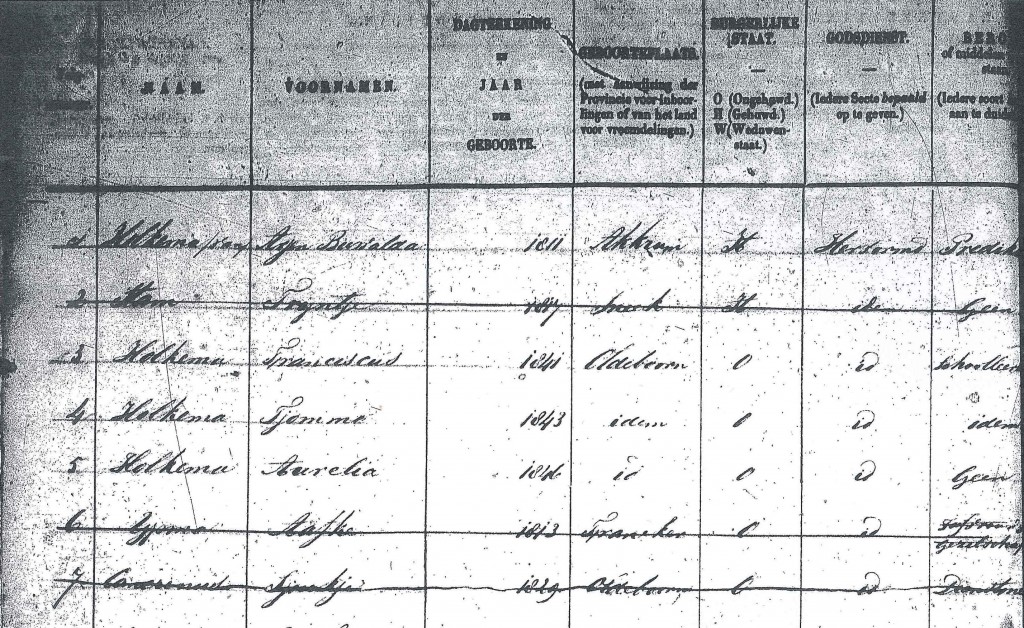 NAAM.
VOORNAMEN.
DAGTEEKENING
EN
JAAR
DER
GEBOORTE.
GEBOORTEPLAATS.
(met Aanwijzing der
Provincie voor inboor-
lingen of van het land
voor vreemdelingen.)
BURGERLIJKE
STAAT.
O (Ongehuwd.)
H (Gehuwd.)
W (Weduwen-
staat.)
GODSDIENST.
(Iedere Secte bepaald
op te geven.)
BERO
of middelen
staan
(Iedere soort
aan te duid
1 Holkema 1811 Akkrum H Hervormd Predik
2 Ham Tryntje H idem Geen
3 Holkema Franciscus 1841 Oldeboorn O id
4 Holkema Tjomme 1843 idem O id idem
5 Holkema Aurelia 1846 id O id Geen
6 Ypma Aafke 1813 Franeker O id
7 1829 Oldeboorn id